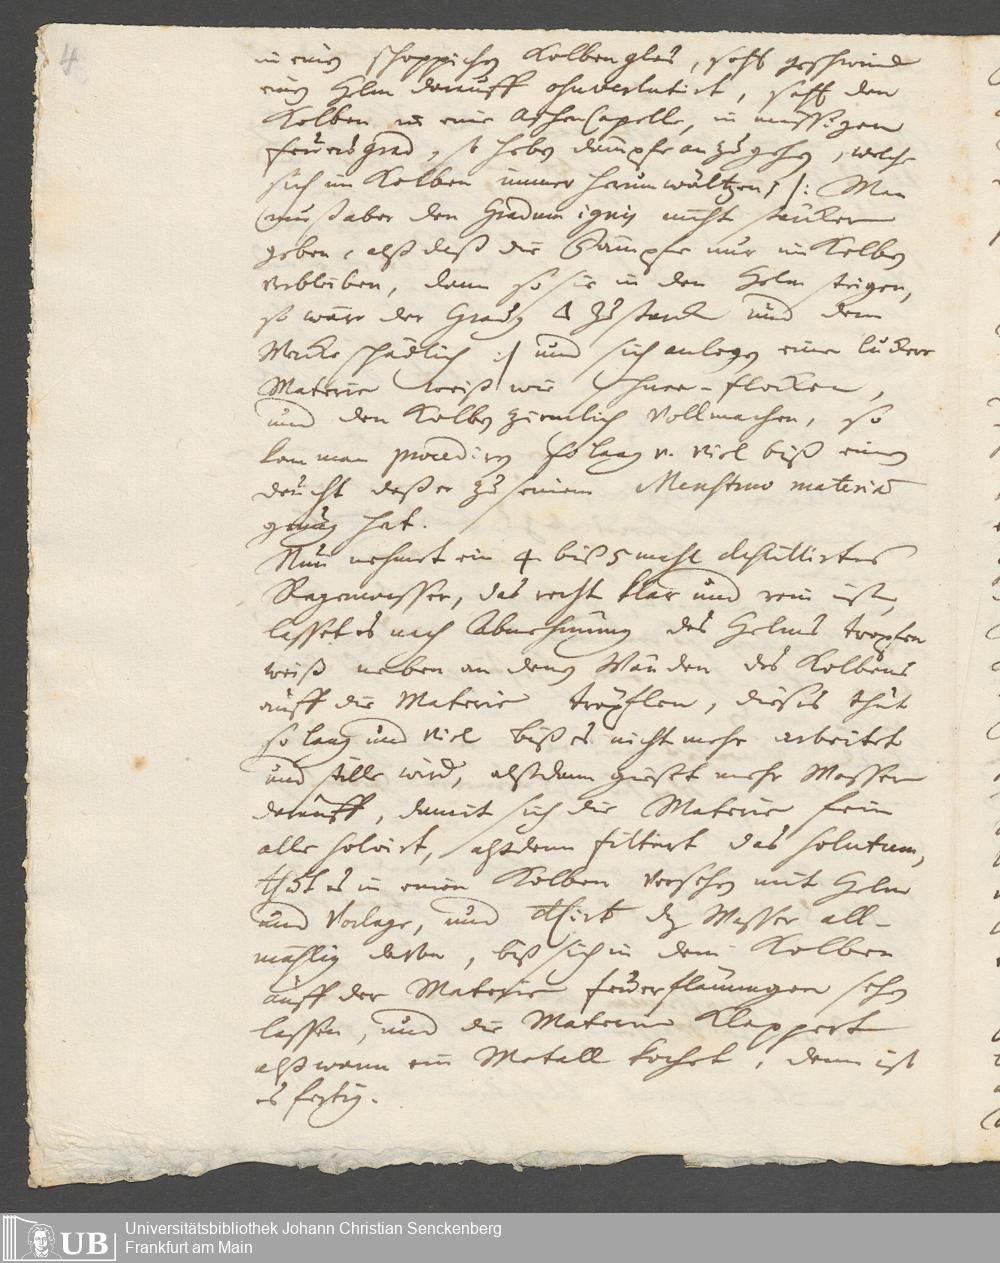 4
in einen schoppichen Kolbenglas, setzt geschwind
einen Helm darauff ohnverlutirt, setzt den
Kolben in eine Aschen Capelle, in mässigem
feuersgrad, so heben dämpfe an zu gehen, welche
sich im Kolben immer herum wältzen, /: Man
muß aber den Gradum ignis nicht stärker
geben, alß daß die Dämpfe nur im Kolben
verbleiben, dann so sie in den Helm steigen,
so wäre der Grad 🜂 zu starck und dem
Wercke schädlich :/ und sich anlegen eine luckere
Materie weiß wie Schnee-flocken,
und den Kolben ziemlich vollmachen, so
kan man procediren so lang u. viel biß einen
deucht daß er zu seinem Menstruo materia
genug hat.
Nun nehmet ein 4 biß 5 mahl destillirtes
Regenwasser, das recht klar und rein ist,
lasset es nach Abnehmung des Helms tropfen
weiß neben an denen Wänden des Kolbens
auff die Materie tröpflen, dieses thut
so lang und viel biß es nicht mehr arbeitet
und stille wird, alßdann gießet mehr Wasser
darauff, damit sich die Materie fein
alle solvirt, alßdann filtrirt das solutum,
thut es in einen Kolben versehen mit Helm
und Vorlage, und das Wasser all-
mählig davon, biß sich in dem Kolben
auff der Materie feuerflammungen sehen
lassen, und die Materie Klappert
alß wann ein Metall kochet, dann ist
es fertig.
UB
Universitätsbibliothek Johann Christian Senckenberg
Frankfurt am Main